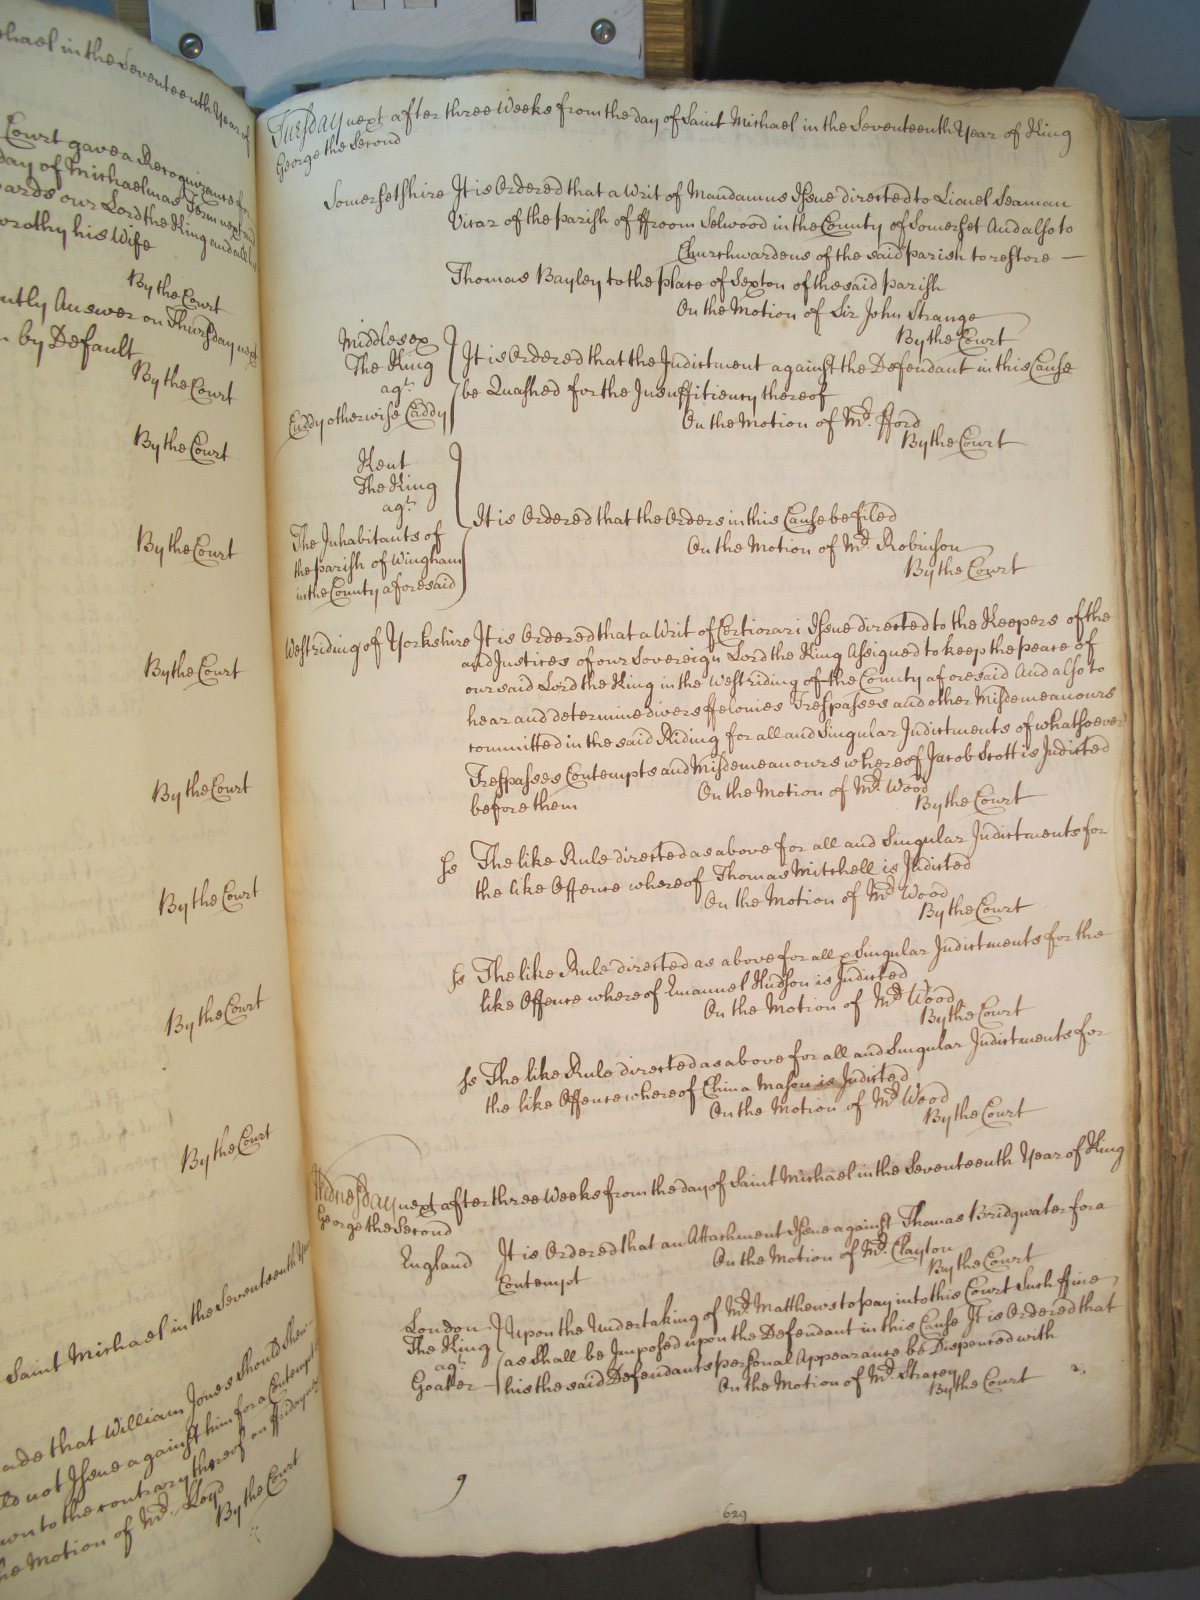 chael in the Seventeenth Year of
Court gave a Recognizance for
day of Michaelmas Term next and
wards our Lord the King and all his
orothy his Wife
By the Court
ently Answer on Thursday next
by Default
By the Court
By the Court
By the Court
By the Court
By the Court
By the Court
By the Court
By the Court
Saint Michael in the Seventeenth Year
ade that William Jones Should Shew
ld not Issue against him for a Contempt
wn to the contrary thereof on Friday next
he Motion of Mr. Lloyd
By the Court
Tuesday next after three Weeks from the day of Saint Michael in the Seventeenth Year of King
George the Second
Somersetshire It is Ordered that a Writ of Mandamus Issue directed to Lionel Seaman
Vicar of the parish of ffroom Selwood in the County of Somerset And also to
Churchwardens of the said parish to restore —
Thomas Bayley to the place of Sexton of the said parish
On the Motion of Sir John Strange
By the Court
Middlesex
The King
agt.
Cuddy otherwise Caddy
It is Ordered that the Indictment against the Defendant in this Cause
be Quashed for the Insufficiency thereof
On the Motion of Mr. fford
By the Court
Kent
The King
agt.
The Inhabitants of
the parish of Wingham
in the County aforesaid
It is Ordered that the Orders in this Cause be filed
On the Motion of Mr. Robinson
By the Court
Westriding of Yorkshire It is Ordered that a Writ of Certiorari Issue directed to the Keepers of the
and Justices of our Sovereign Lord the King Assigned to keep the peace of
our said Lord the King in the Westriding of the County aforesaid And also to
hear and determine divers ffelonies Trespasses and other Misdemeanours
committed in the said Riding for all and Singular Indictments of whatsoever
Trespasses Contempts and Misdemeanours whereof Jacob Scott is Indicted
before them On the Motion of Mr. Wood
By the Court
ss The like Rule directed as above for all and Singular Indictments for
the like Offence whereof Thomas Mitchell is Indicted
On the Motion of Mr Wood
By the Court
ss The like Rule directed as above for all & Singular Indictments for the
like Offence whereof Emanuel Hudson is Indicted
On the Motion of Mr Wood
By the Court
ss The like Rule directed as above for all and Singular Indictments for
the like Offence whereof China Mason is Indicted
On the Motion of Mr Wood
By the Court
Wednesday next after three Weeks from the day of Saint Michael in the Seventeenth Year of King
George the Second
England It is Ordered that an Attachment Issue against Thomas Bridgwater for a
Contempt On the Motion of Mr. Clayton
By the Court
London
The King
agt.
Goater
Upon the Undertaking of Mr. Matthews to pay into this Court Such ffine
as Shall be Imposed upon the Defendant in this Cause It is Ordered that
his the said Defendants personal Appearance be Dispenced with
On the Motion of Mr. Stracey
By the Court
9
629